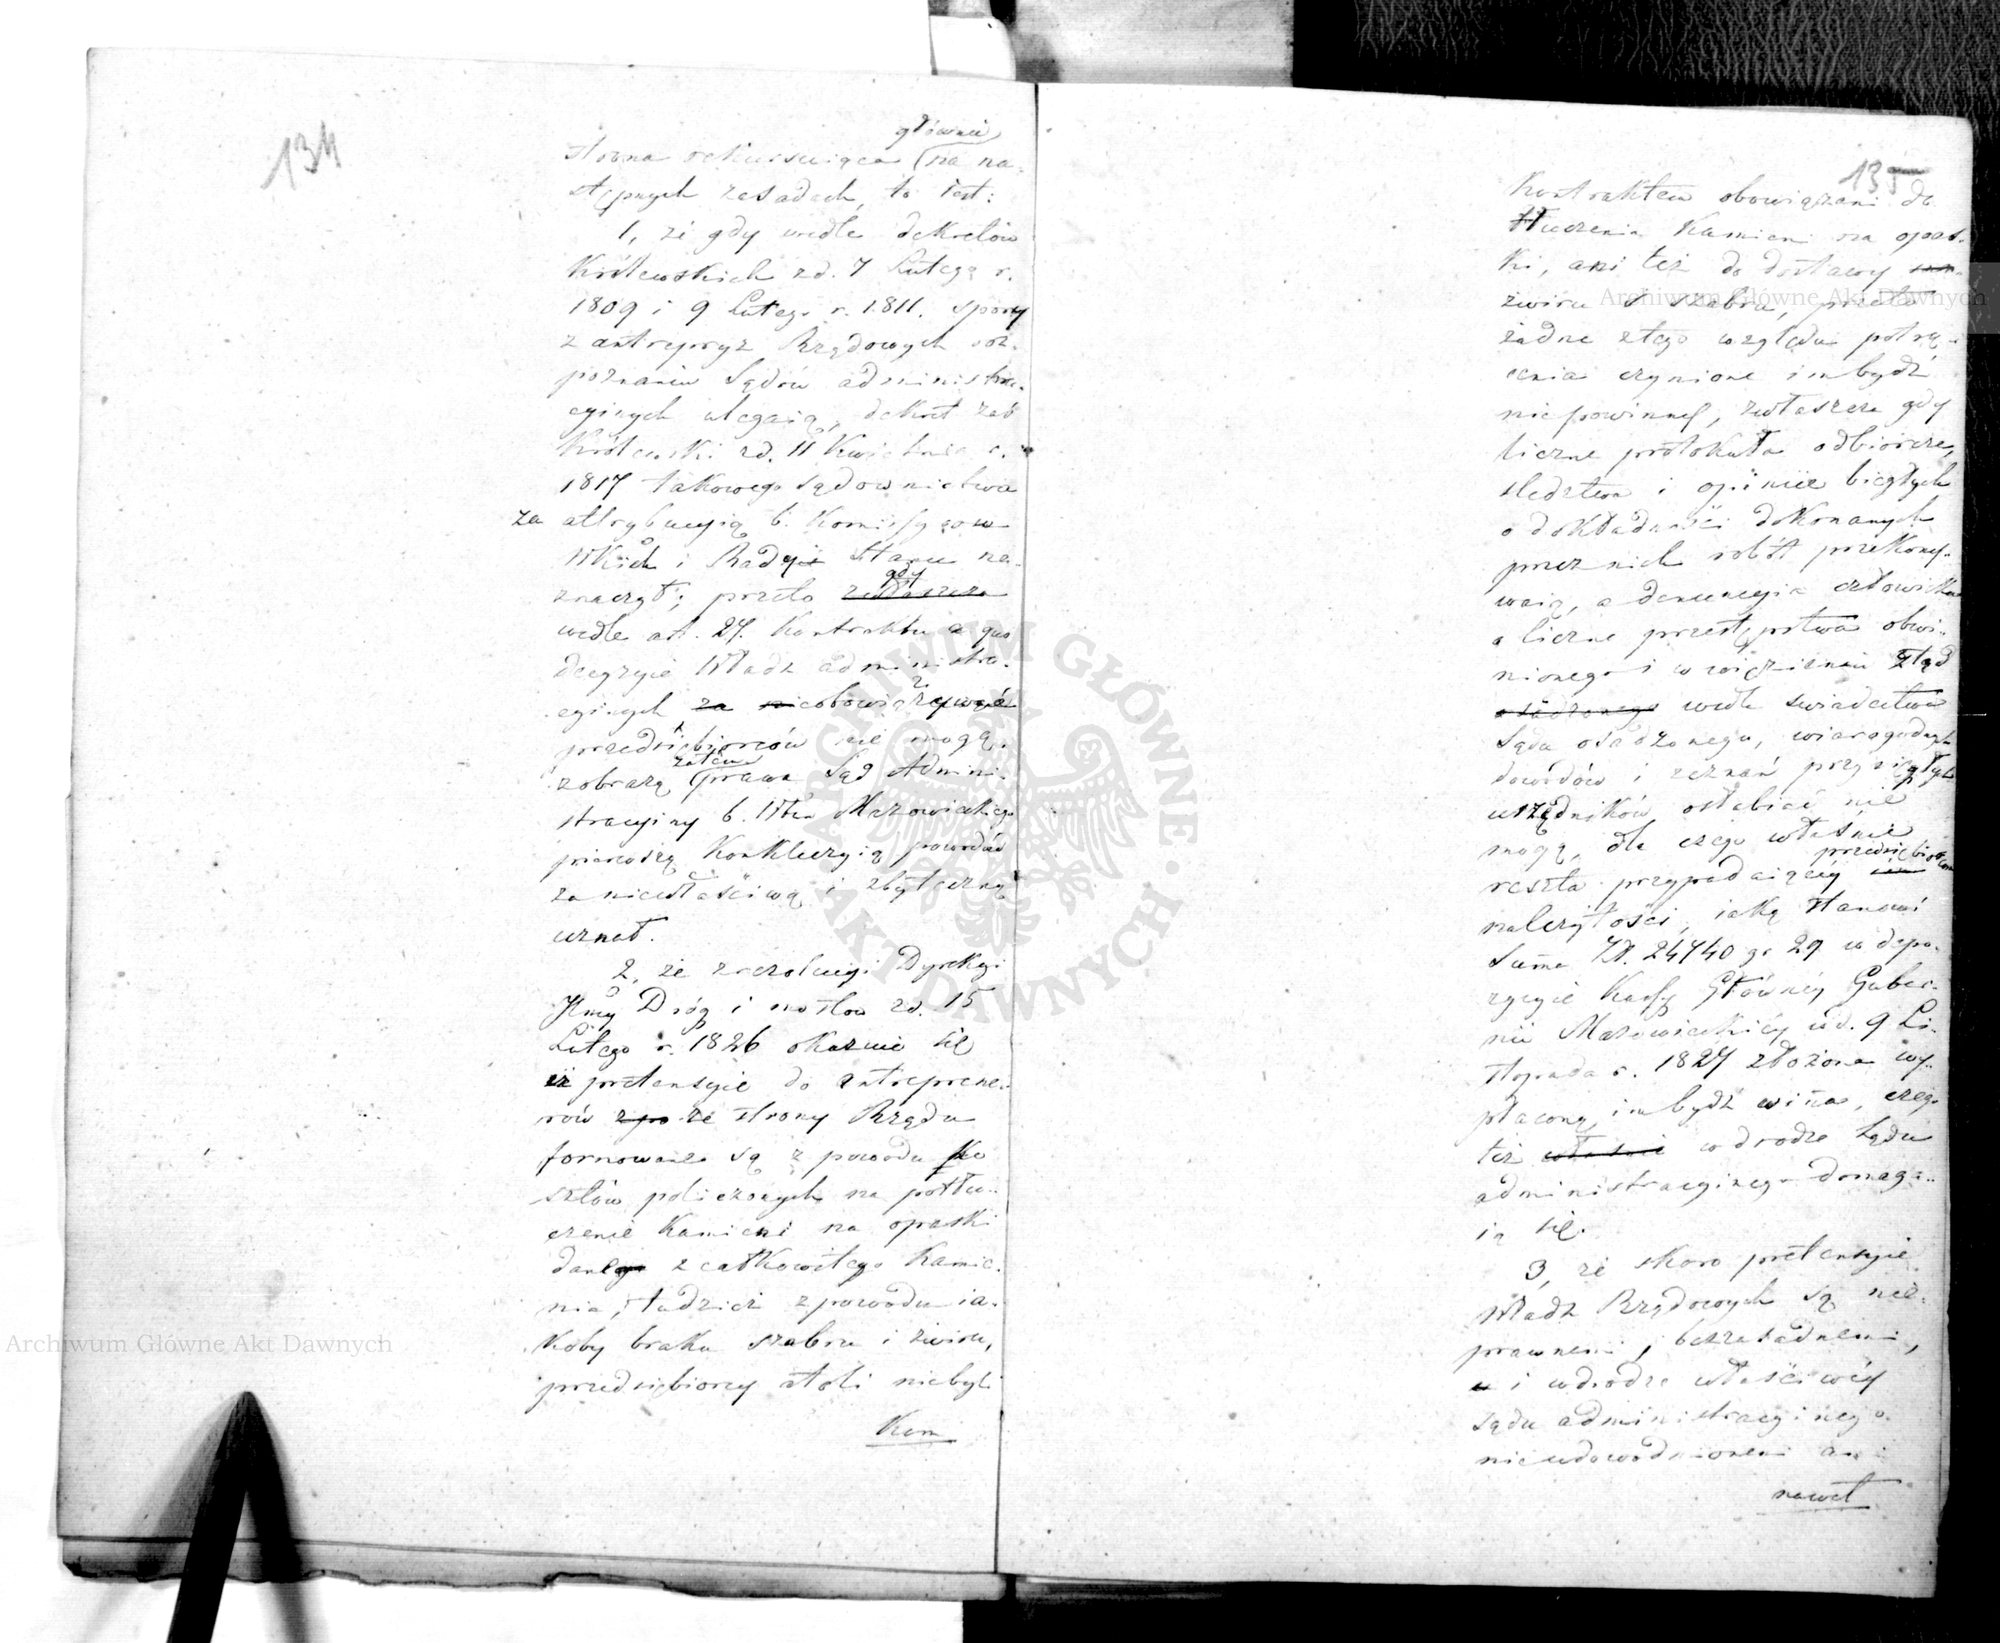 134
głównie
strona rekursuiąca na na-
stępnych zasadach, to iest:
1, że gdy wedle dekretów
Królewskich zd. 7 Lutego r.
1809 i 9 Lutego r. 1811. spory
z antrepryz Rządowych roz-
poznaniu Sądów administra-
cyinych ulegaią, dekret zaś
Królewski zd. 11 Kwietnia r.
1817 takowego sądownictwa
za attrybucyią b. Kommissyiow
Wkich i Radyie Stanu na-
znaczył; przeto zwłaszcza
gdy
wedle art. 27. Kontraktu a quo
decyzyie Władz administra-
cyinych za nieobowiązywać
przedsiębiorców nie mogą,
zatem
zobrazą prawa Sąd Admini-
stracyiny b. Wtwa Mazowieckiego
pierwszą Konkluzyią powodów
za niewłaściwą i zbyteczną
uznał.
2, że z rezolucyi Dyrekcyi
Jlney Dróg i mostow zd. 15
Lutego r. 1826 okazuie się
iż pretensyie do antreprene-
rów zpo ze strony Rządu
formowane są z powodu ko
sztów policzonych na potłu-
czenie Kamieni na opaski
danego z całkowitego Kamie-
nia, tudzież z powodu ia-
koby braku szabru i żwiru,
przedsiębiorcy atoli niebyli
Kon
135
Kontraktem obowiązani do
tłuczenia Kamieni na opas-
ki, ani też do dostawy
żwiru i szabru, przeto
żadne ztego względu potrą-
cenia czynione imbydź
niepowinny, zwłaszcza gdy
liczne protokuła odbiorcze,
sledztwa i opiniie biegłych
o dokładności dokonanych
przeznich robót przekony-
waią, a denuncyia człowieka
o liczne przestępstwa obwi-
nionego i w więzieniu ztąd
osadzonego wedle swiadectwa
Sądu osadzonego, wiarogodnych
dowodów i zeznań przysięgłych
urzędników osłabiać nie
mogą, dla czego właśnie
przedsiębiorcom
reszta przypadaiącéy im
należytości, iaką stanowi
Summa Zł. 24740 gr 29 w depo-
zycyie Kassy Głównéy Guber-
nii Mazowieckiéy pod d. 9 Li-
stopada r. 1827 złożona wy-
płaconą imbydź winna, czego
też właśnie w drodze Sądu
administracyinego domaga-
ią się.
3, że skoro pretensyie
Władz Rządowych są nie-
prawnemi, bezzasadnemi,
u i wdrodze właściwéy
sądu administracyinego
nieudowodnionemi ani
nawet
Archiwum Główne Akt Dawnych
Archiwum Główne Akt Dawnych
ARCHIWUM GŁÓWNE AKT DAWNYCH